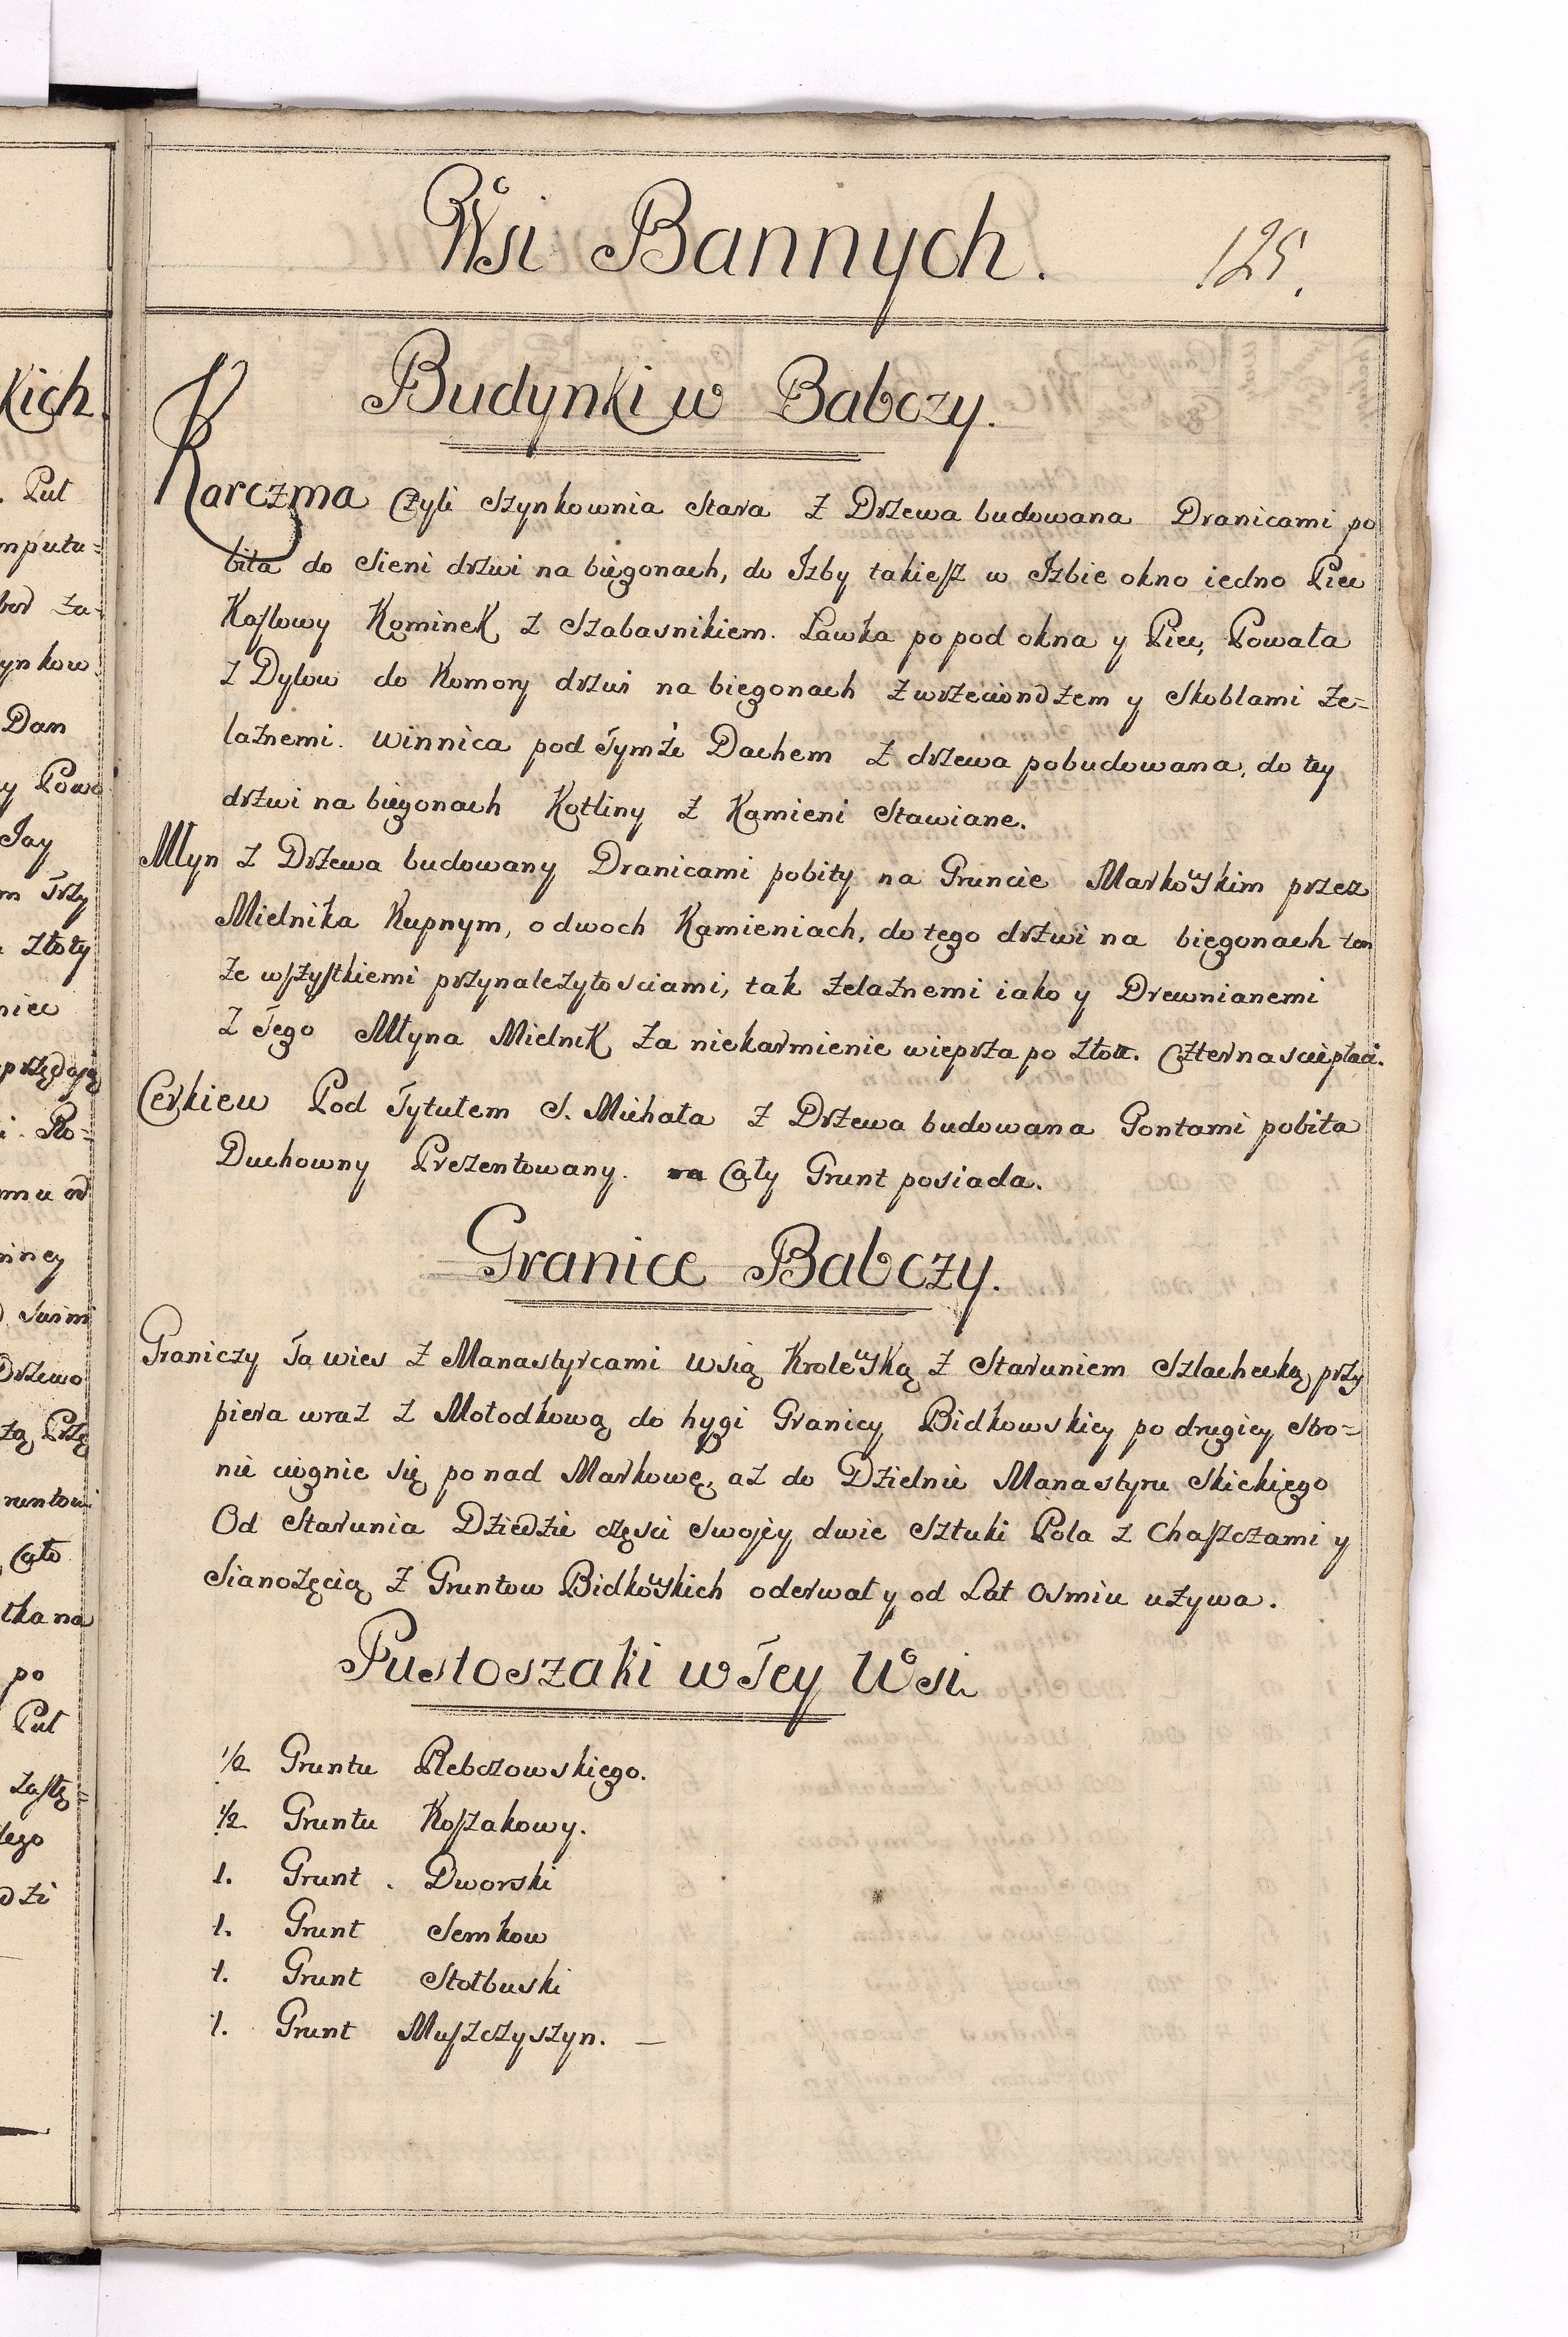 Wsi Bannych.
125.
Budynki w Babczy.
Karczma Czyli Szynkownia Stara z Drzewa budowana Dranicami po
bita do Sieni drzwi na biegonach, do Izby takiesz w Izbie okno iedno Piec
Kaflowy Kominek z Szabasnikiem. Lawka popod okna y Piec, Powała
z Dylow do Komory drzwi na biegonach z wrzeciondzem y Skoblami że-
laznemi. Winnica pod Tymże Dachem z drzewa pobudowana, do tey
drzwi na biegonach Kotliny z Kamieni Stawiane.
Młyn z Drzewa budowany Dranicami pobity na Gruncie Markowskim przez
Mielnika Kupnym, o dwoch Kamieniach, do tego drzwi na biegonach ten
ze wszystkiemi przynależytosciami, tak żelaznemi iako y Drewnianemi
z Tego Młyna Mielnik za niekarmienie wieprza po złott. Czternascie płaci.
Cerkiew Pod Tytułem S. Michała z Drzewa budowana Gontami pobita
Duchowny Prezentowany. Cały Grunt posiada.
Granice Babczy.
Graniczy Ta wies z Manastyrcami Wsią Krolewską z Staruniem Szlachecką przy
piera wraz z Mołodkową do hygi Granicy Bidkowskiey po drugiey stro-
nie ciągnie się ponad Markowę, aż do Dzielnic Manastyru Skickiego
Od Starunia Dziedzic części Swojey dwie Sztuki Pola z Chaszczami y
Sianożęcią z Gruntow Bidkowskich oderwał y od Lat Osmiu używa.
Pustoszaki w Tey Wsi
1/2 Gruntu Rebczowskiego.
1/2 Gruntu Koszakowy.
1. Grunt Dworski
1. Grunt Semkow
1. Grunt Stołbuski
1. Grunt Muszczyszyn. —
kich.
Put
mputu-
ynkow.
Dan
y Powa
Jay
m Trzy
złoty
niec
i. Po-
mu od
inney
Drzewo
Cało
tka na
po
Put
tego
dzi